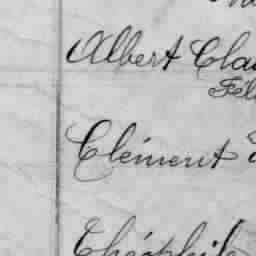 Albert Cla
Fél
Clément
Théophile